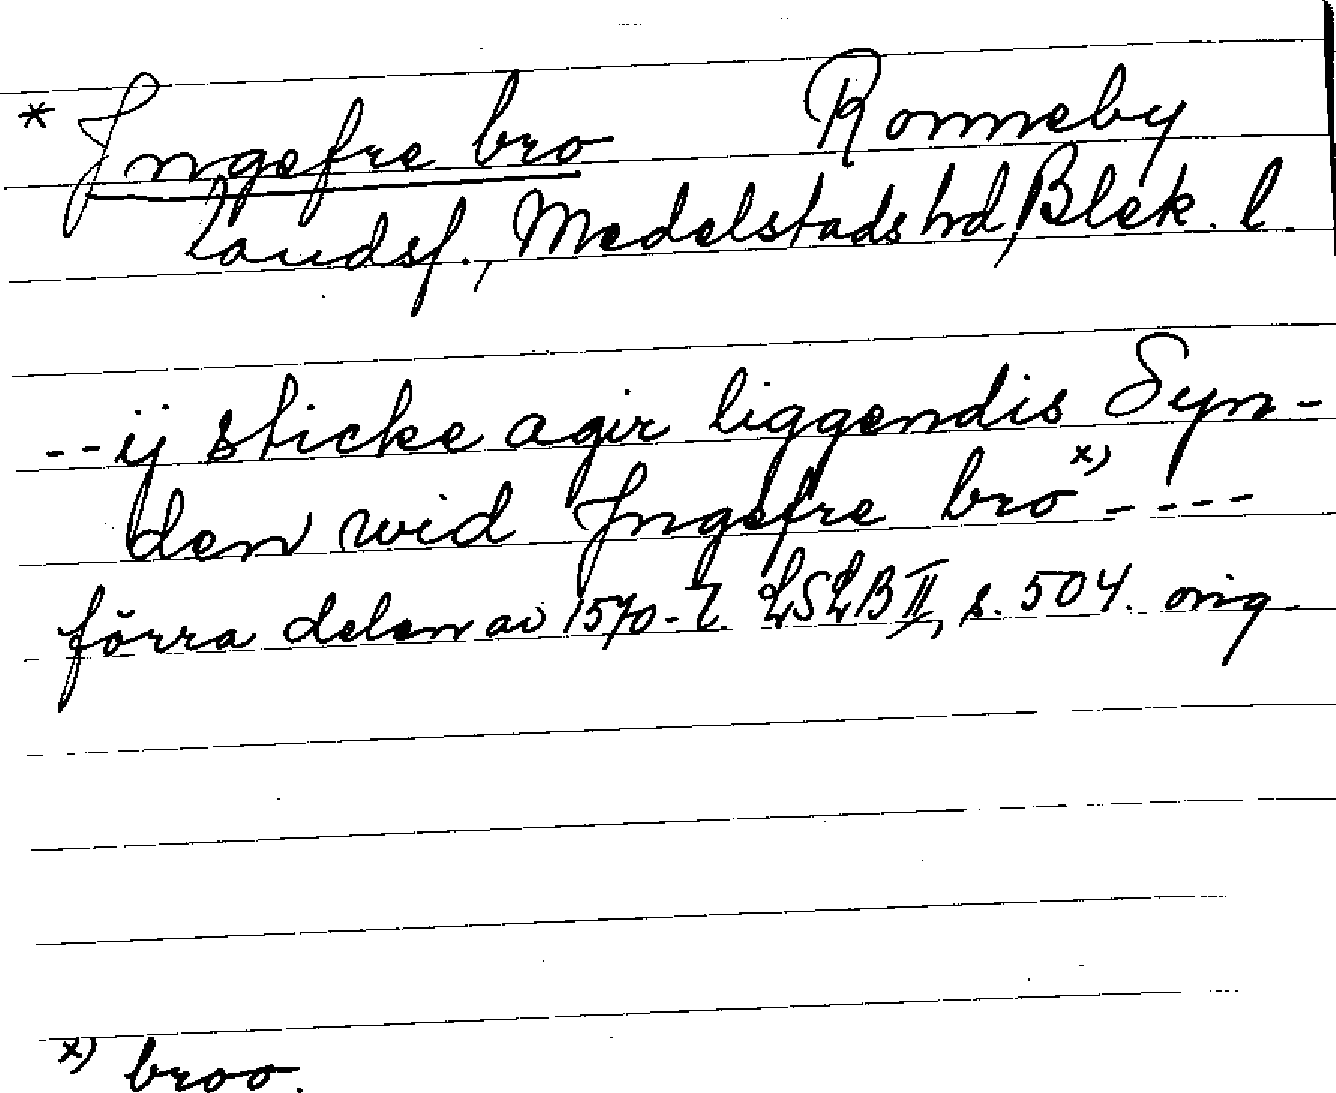 * Jngefre bro Ronneby
Landsf., Medelstads hd, Blek. l.
--ij sticke agir liggendis Syn-
den wid Jngefre bro x) ----
förra delen av 1570-t. LSLB II, s. 504. orig.
x) broo.